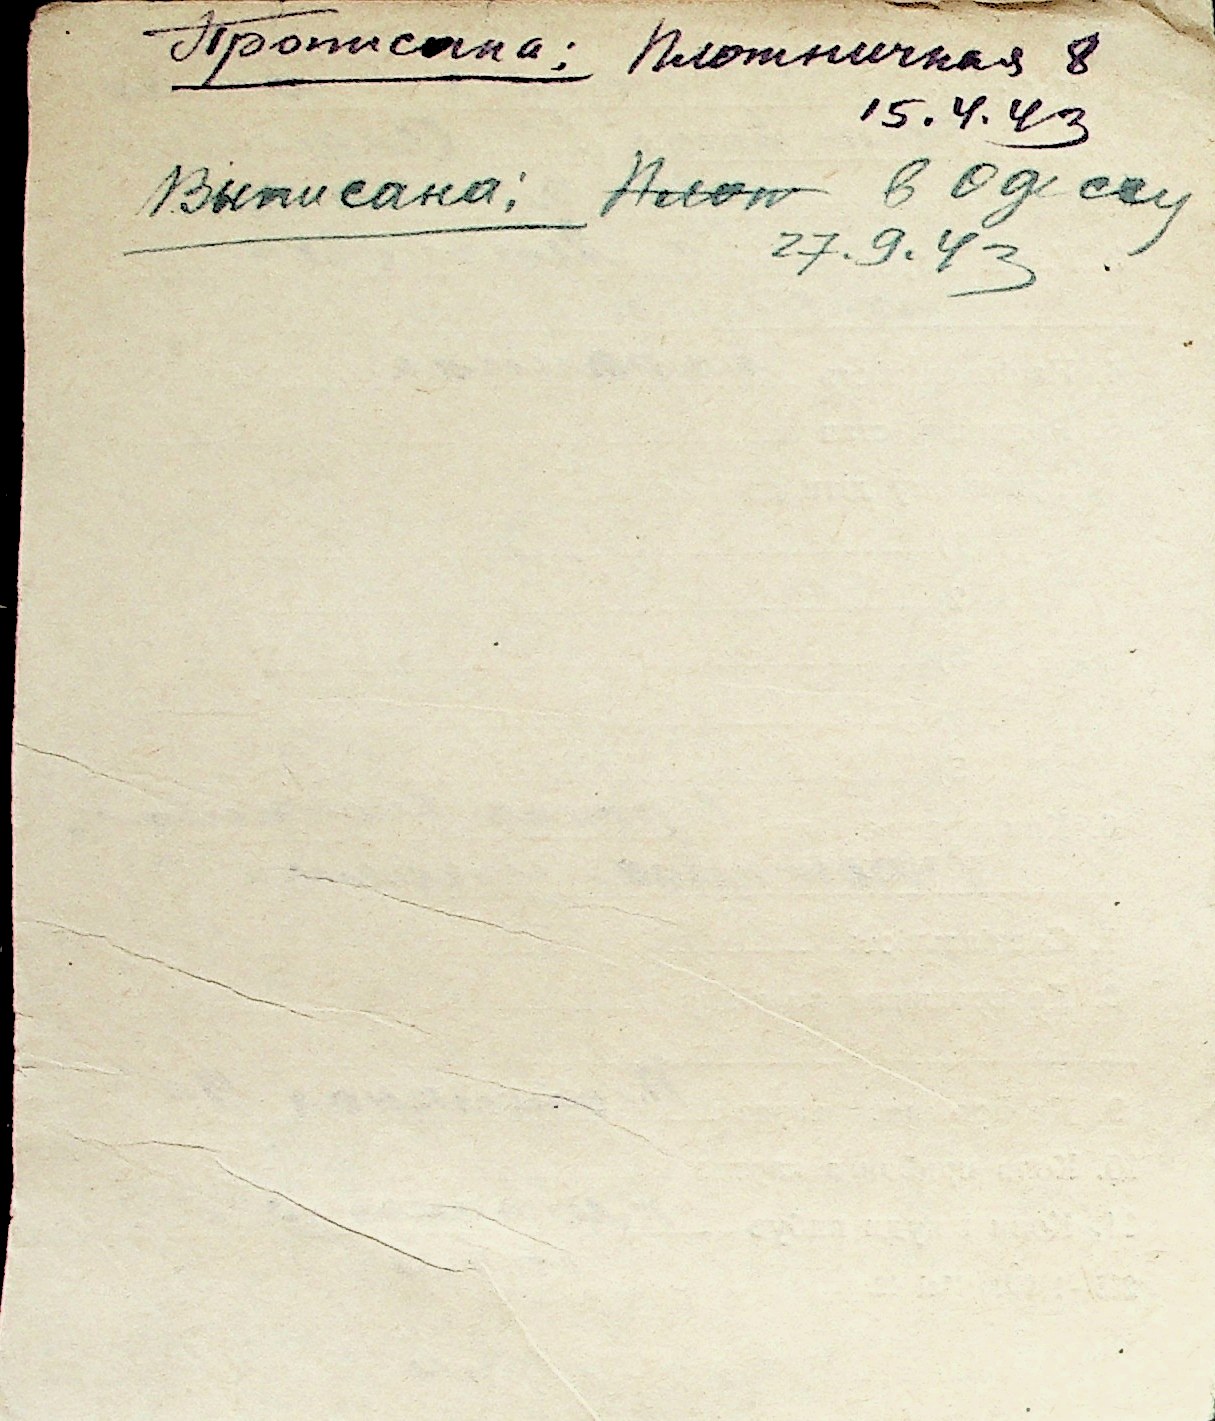 Прописана: Плотничная 8
15.4.43
Выписана: Плот в Одессу
27.9.43